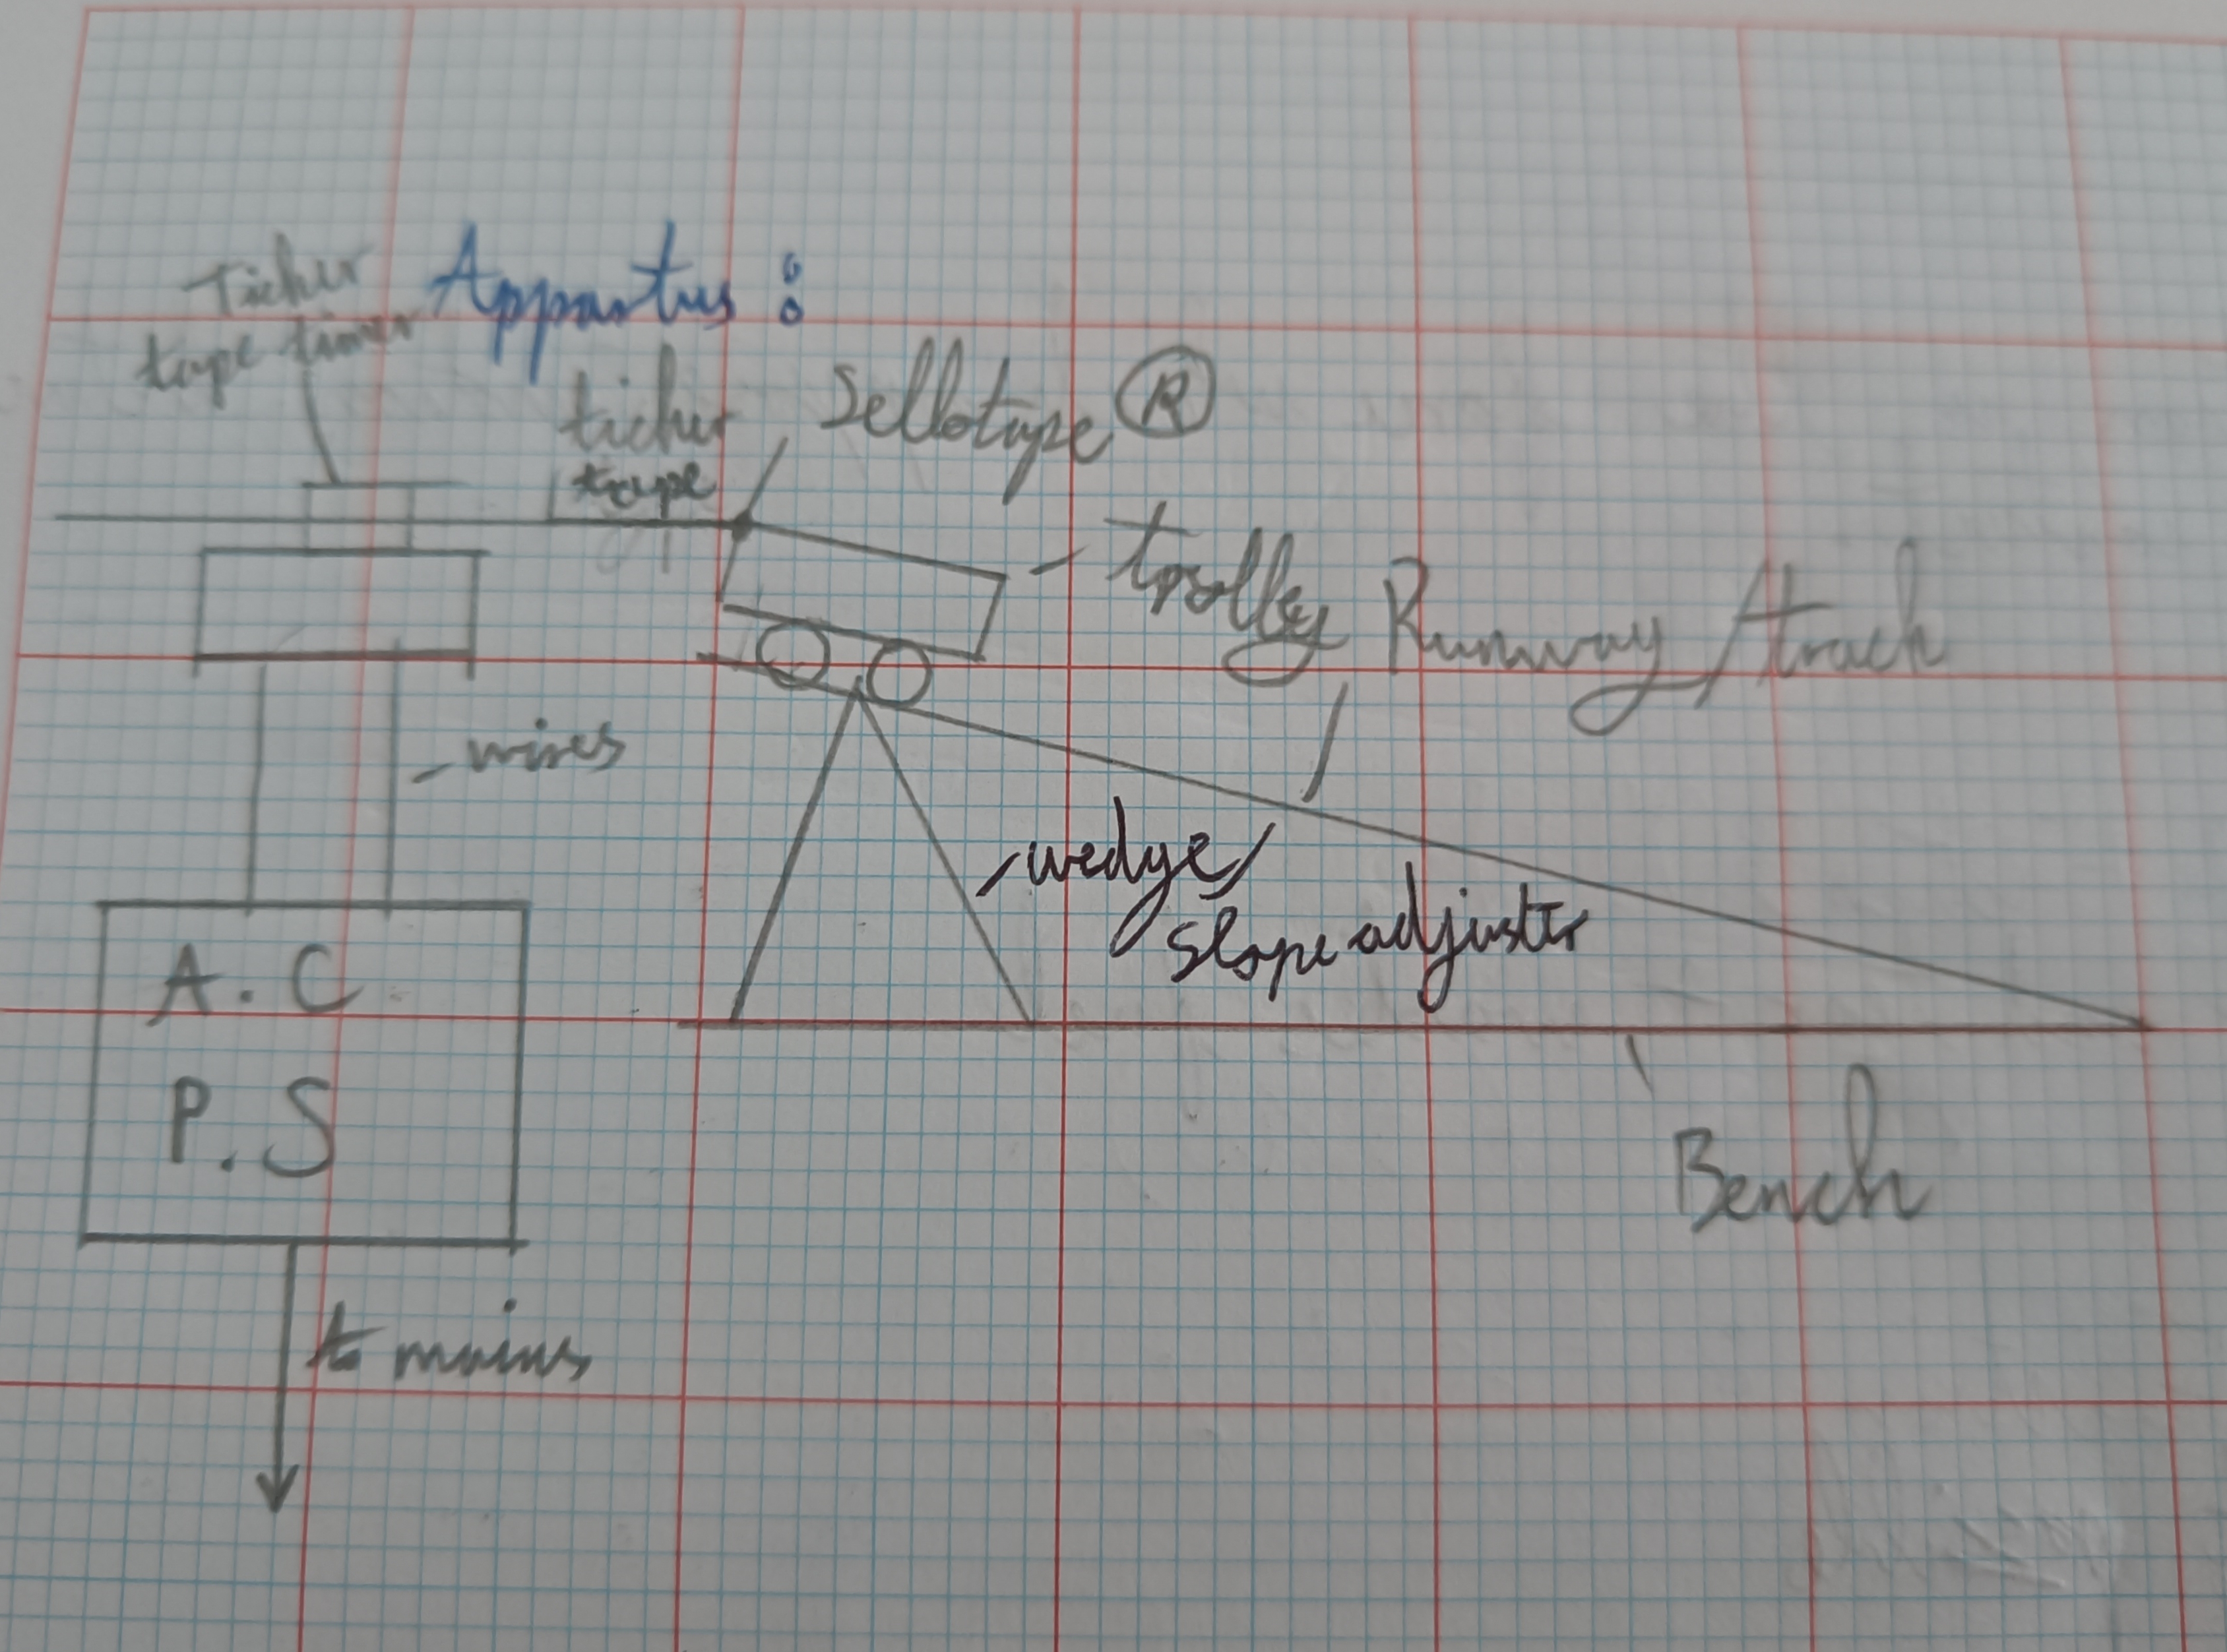 Apparatus :
Ticker
tape timer
ticker
tape
Sellotape ®
trolley
Runway / track
wires
wedge /
slope adjuster
A.C
P.S
Bench
to mains